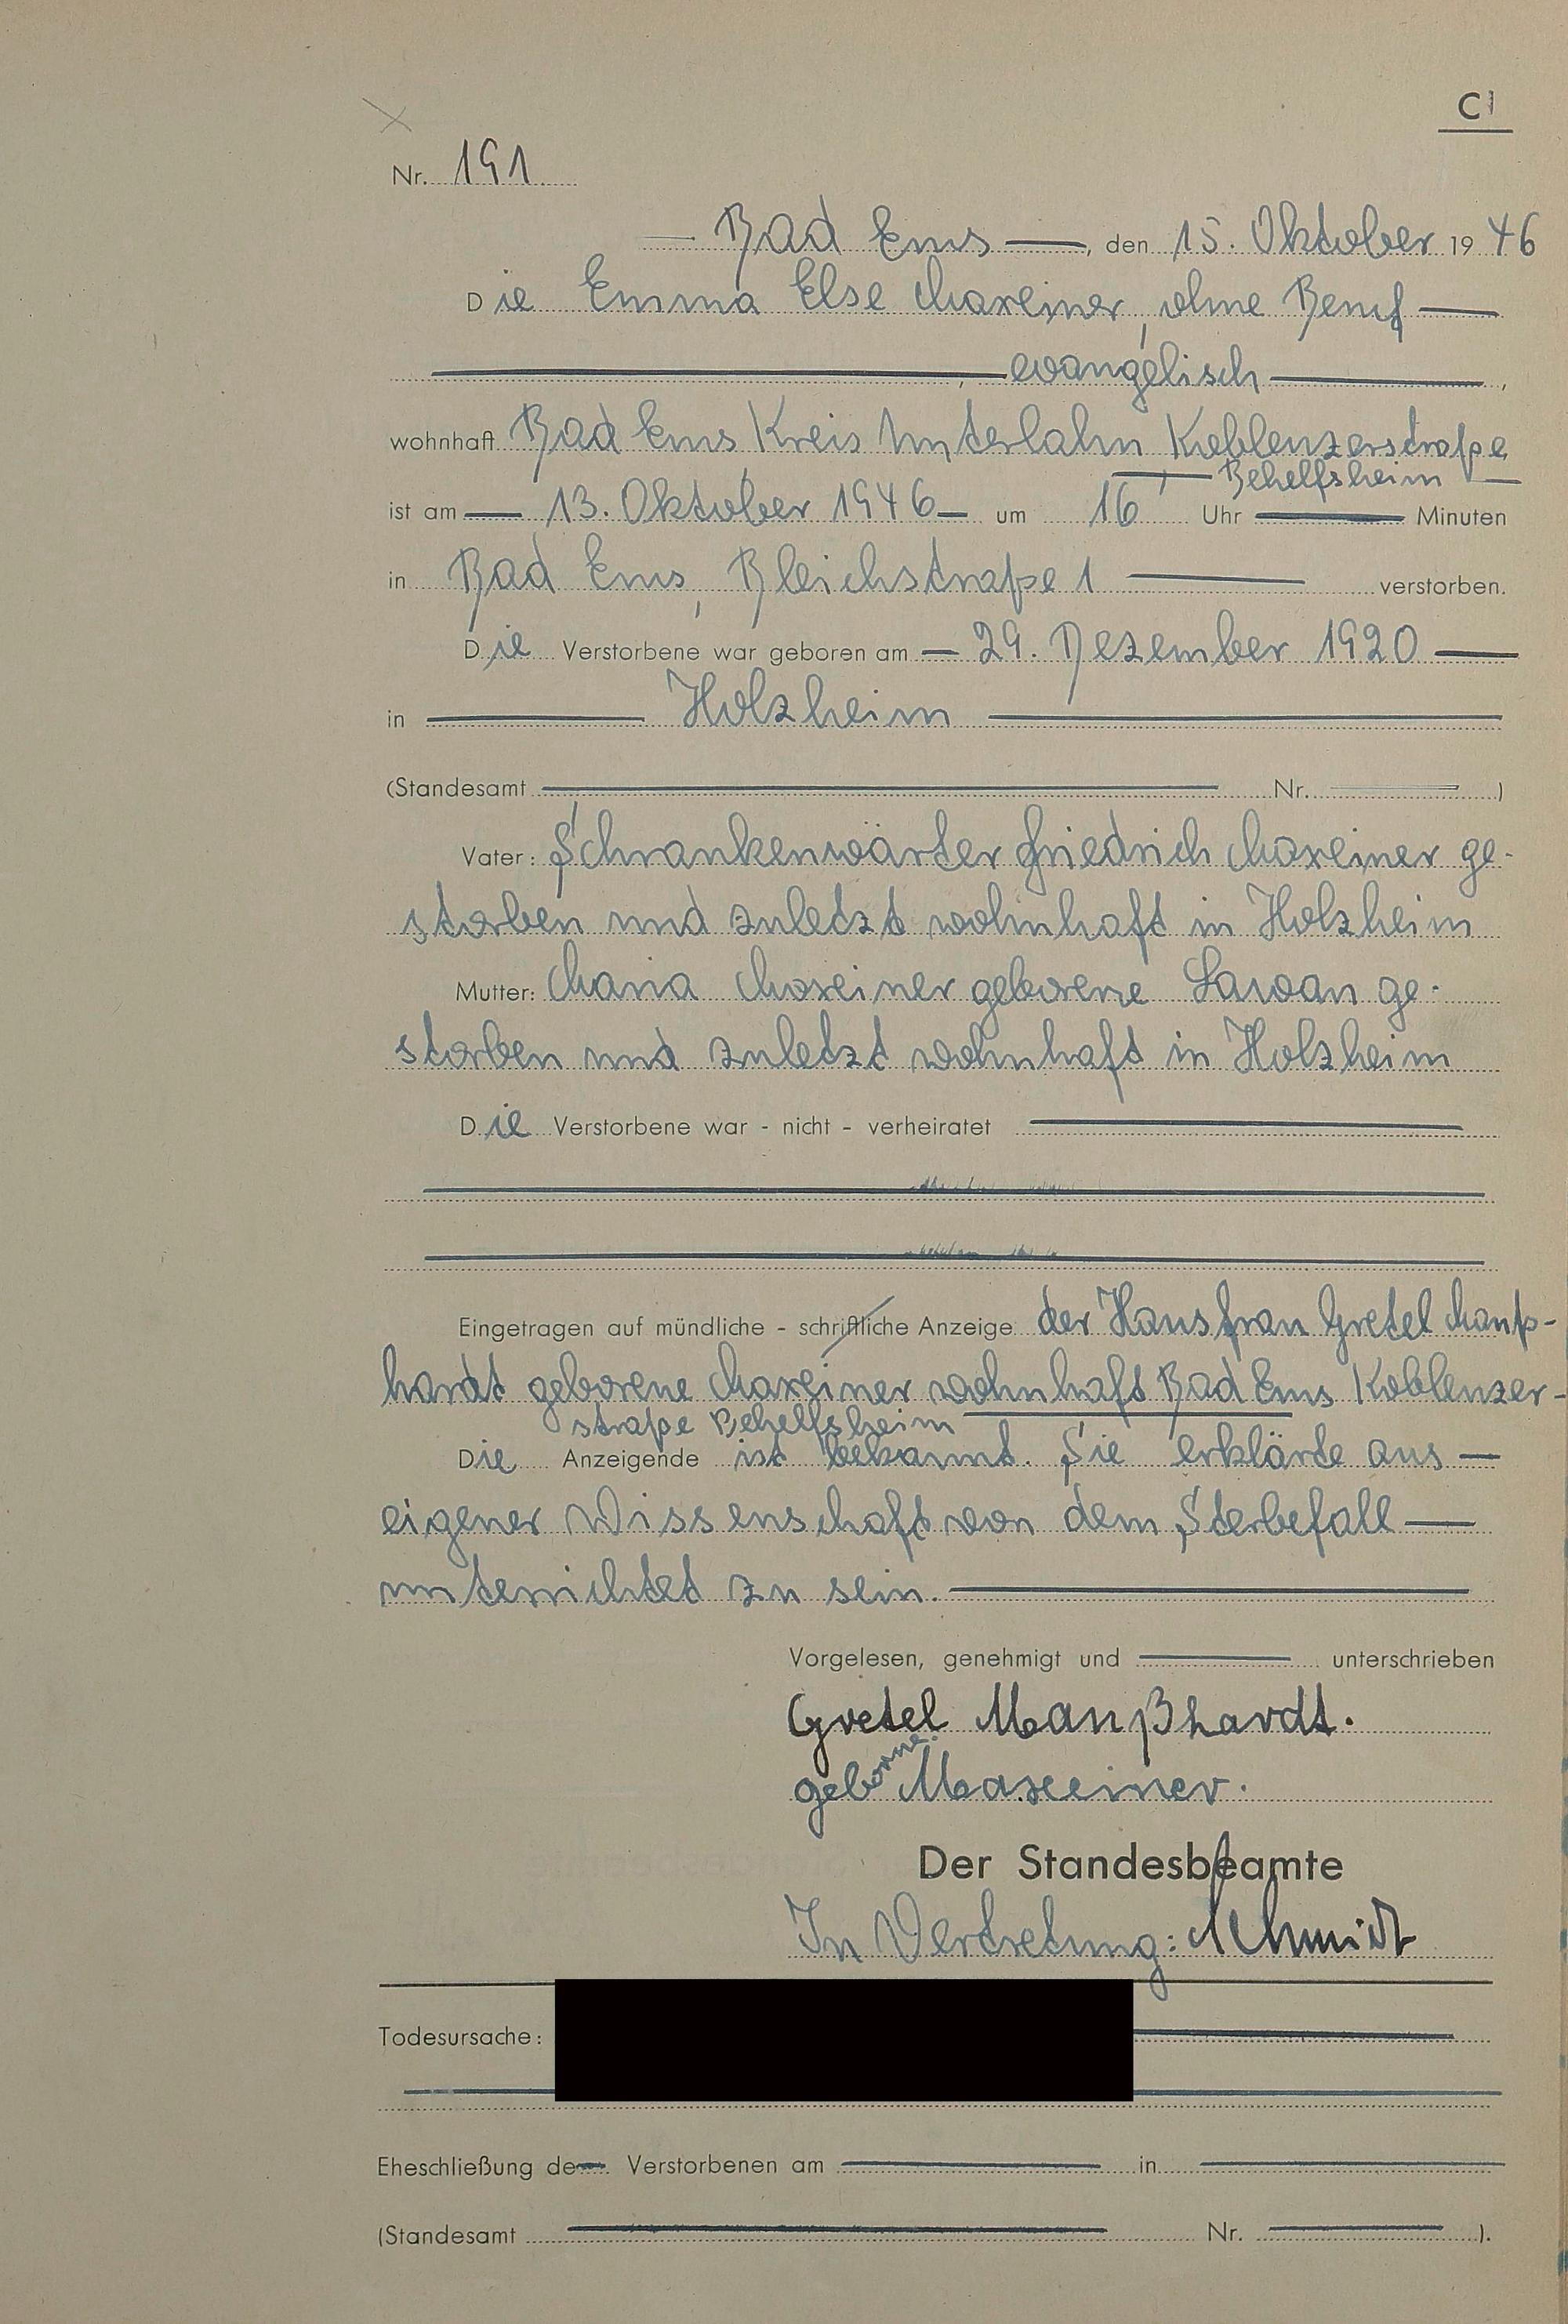 C
Nr. 191
Bad Ems, den 15. Oktober 1946
Die Emma Else Maxeiner, ohne Beruf
evangelisch,
wohnhaft Bad Ems Kreis Unterlahn Koblenzerstraße
Behelfsheim
ist am 13. Oktober 1946 um 16 Uhr Minuten
in Bad Ems, Bleichstraße 1 verstorben.
Die Verstorbene war geboren am 29. Dezember 1920
in Holzheim
(Standesamt Nr. )
Vater: Schrankenwärter Friedrich Maxeiner ge-
storben und zuletzt wohnhaft in Holzheim
Mutter: Maria Maxeiner geborene Lawan ge-
storben und zuletzt wohnhaft in Holzheim
Die Verstorbene war - nicht - verheiratet
Eingetragen auf mündliche - schriftliche Anzeige der Hausfrau Gretel Manß-
hardt geborene Maxeiner wohnhaft Bad Ems Koblenzer-
straße Behelfsheim
Die Anzeigende ist bekannt. Sie erklärte aus
eigener Wissenschaft von dem Sterbefall
unterrichtet zu sein.
Vorgelesen, genehmigt und unterschrieben
Gretel Manßhardt.
geborne Maxeiner.
Der Standesbeamte
In Vertretung: Schmidt
Todesursache:
Eheschließung de Verstorbenen am in
(Standesamt Nr. ).